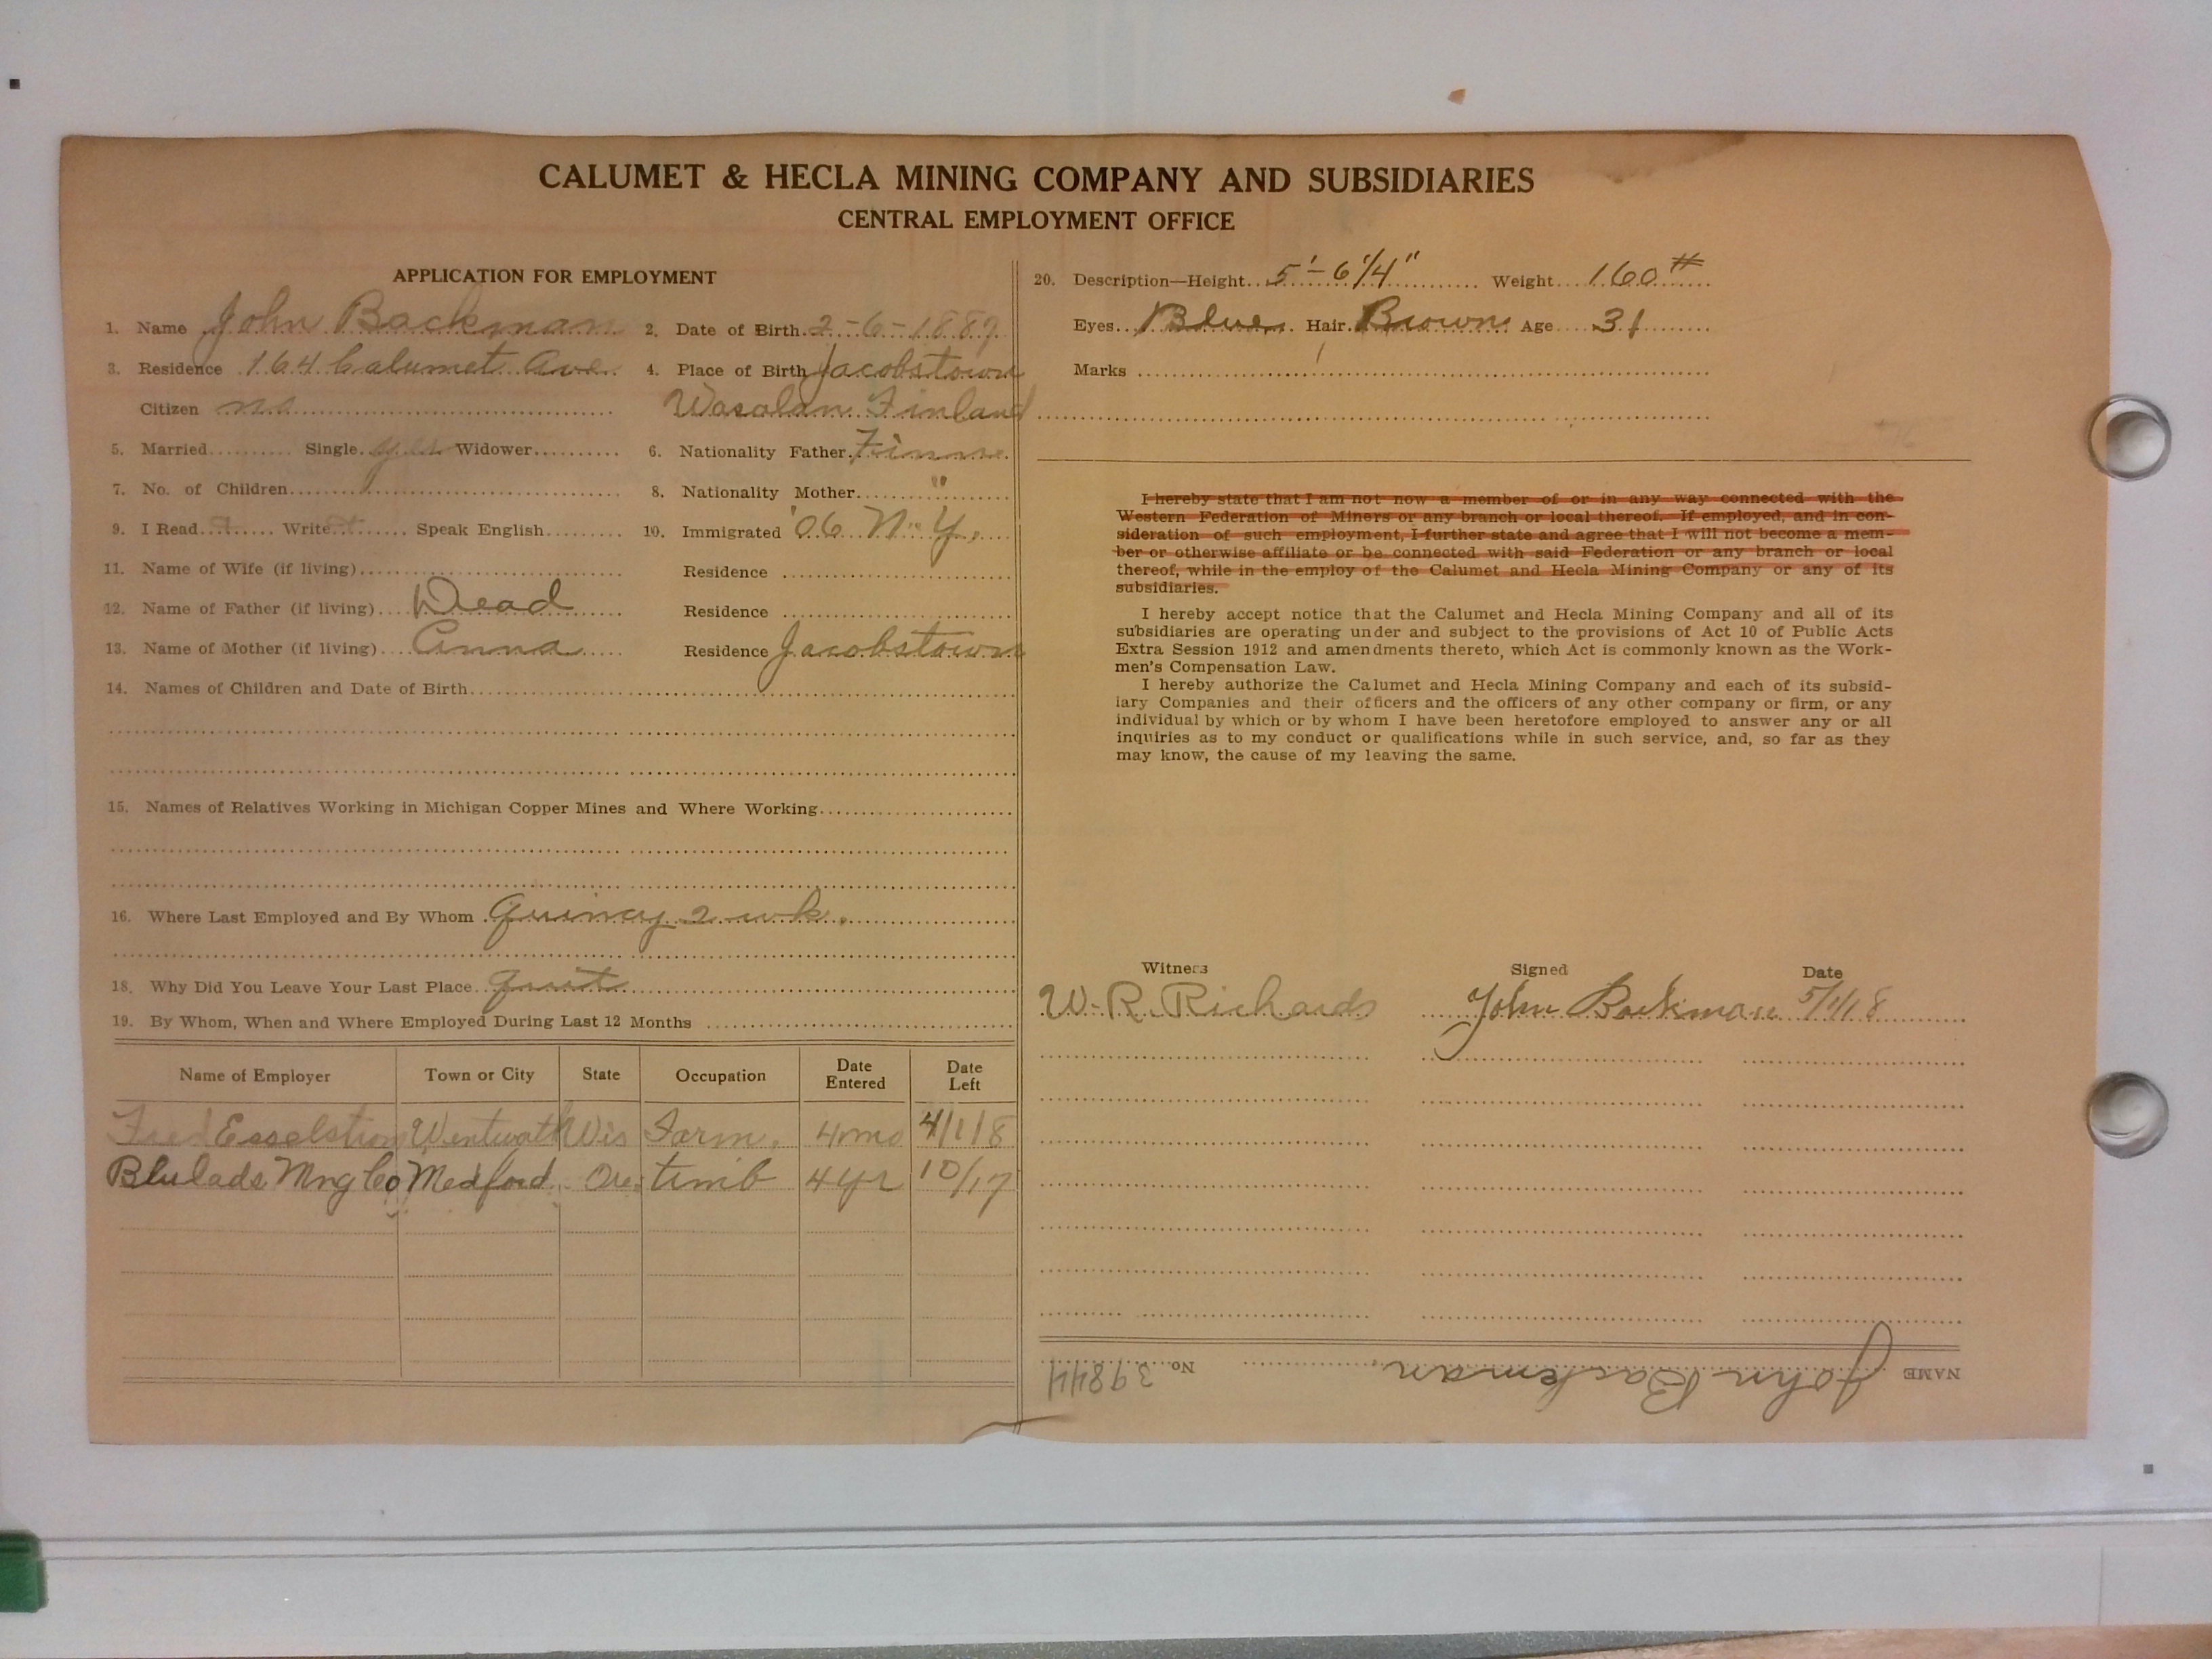 CALUMET & HECLA MINING COMPANY AND SUBSIDIARIES
CENTRAL EMPLOYMENT OFFICE
APPLICATION FOR EMPLOYMENT
1. Name John Backman 2. Date of Birth 2-6-1889
3. Residence 164 Calumet Ave. 4. Place of Birth Jacobstown
Citizen no Wasalan Finland
5. Married Single yes Widower 6. Nationality Father Finn
7. No. of Children 8. Nationality Mother "
9. I Read Write Speak English 10. Immigrated '06 N.Y.
11. Name of Wife (if living) Residence
12. Name of Father (if living) Dead Residence
13. Name of Mother (if living) Anna Residence Jacobstown
14. Names of Children and Date of Birth
15. Names of Relatives Working in Michigan Copper Mines and Where Working
16. Where Last Employed and By Whom Quincy 2 wk.
18. Why Did You Leave Your Last Place quit
19. By Whom, When and Where Employed During Last 12 Months
Name of Employer Town or City State Occupation Date Entered Date Left
Fred Wis Farm. 4mo 4/1/18
Mng Co Medford Ore. timb 4 yr 10/17
20. Description—Height 5'-6 1/4" Weight 160#
Eyes Blue Hair Brown Age 31
Marks
I hereby state that I am not now a member of or in any way connected with the
Western Federation of Miners or any branch or local thereof. If employed, and in con-
sideration of such employment, I further state and agree that I will not become a mem-
ber or otherwise affiliate or be connected with said Federation or any branch or local
thereof, while in the employ of the Calumet and Hecla Mining Company or any of its
subsidiaries.
I hereby accept notice that the Calumet and Hecla Mining Company and all of its
subsidiaries are operating under and subject to the provisions of Act 10 of Public Acts
Extra Session 1912 and amendments thereto, which Act is commonly known as the Work-
men's Compensation Law.
I hereby authorize the Calumet and Hecla Mining Company and each of its subsid-
iary Companies and their officers and the officers of any other company or firm, or any
individual by which or by whom I have been heretofore employed to answer any or all
inquiries as to my conduct or qualifications while in such service, and, so far as they
may know, the cause of my leaving the same.
Witness Signed Date
W. R. Richards John Backman 5/1/18
NAME John Backman No. 39844